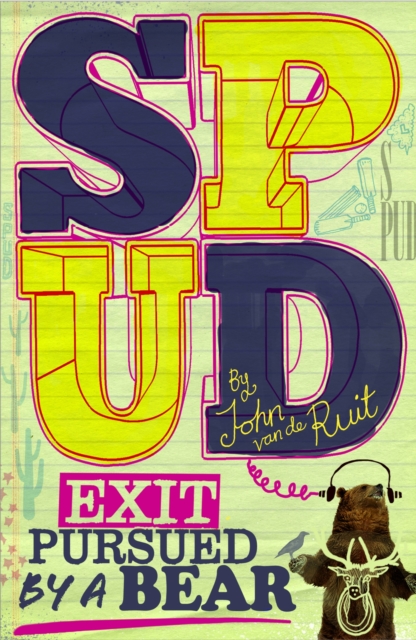 SP
UD
By
John
van de Ruit
S
PUD
EXIT
PURSUED
BY A BEAR